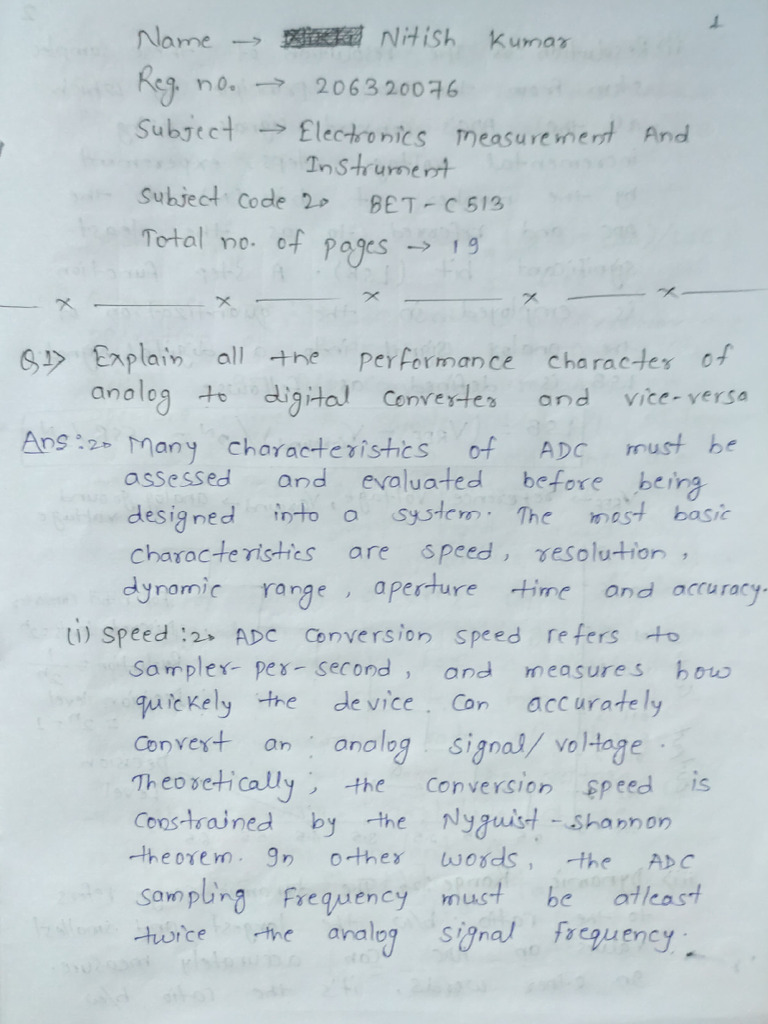 1
Name → Nitish Kumar
Reg. no. → 206320076
Subject → Electronics measurement And
Instrument
Subject code :→ BET-C513
Total no. of pages → 19
x x x x x
Q1> Explain all the performance character of
analog to digital converter and vice-versa
Ans :→ Many characteristics of ADC must be
assessed and evaluated before being
designed into a system. The most basic
characteristics are speed, resolution,
dynamic range, aperture time and accuracy.
(i) speed :→ ADC conversion speed refers to
sampler-per-second, and measures how
quickely the device. Can accurately
convert an analog signal/voltage.
Theoretically, the conversion speed is
constrained by the Nyguist-shannon
theorem. In other words, the ADC
sampling frequency must be atleast
twice the analog signal frequency.